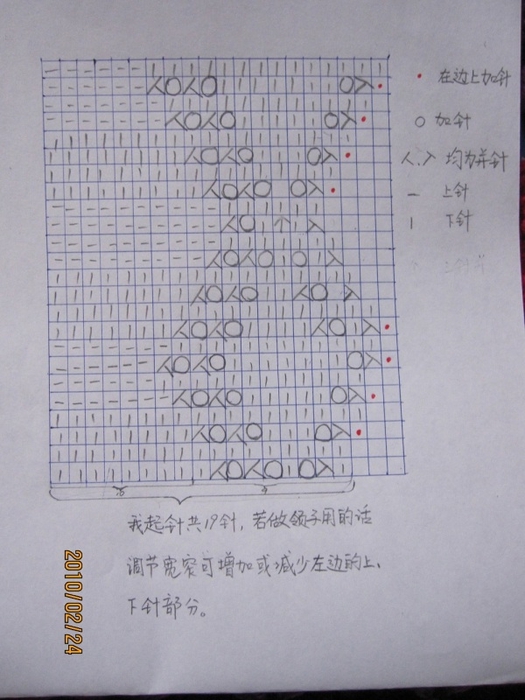 • 在边上加针
○ 加针
人.入 均为并针
— 上针
| 下针
我起针共19针,若做领子用的话
调节宽窄可增加或减少左边的上、
下针部分。
2010/02/24